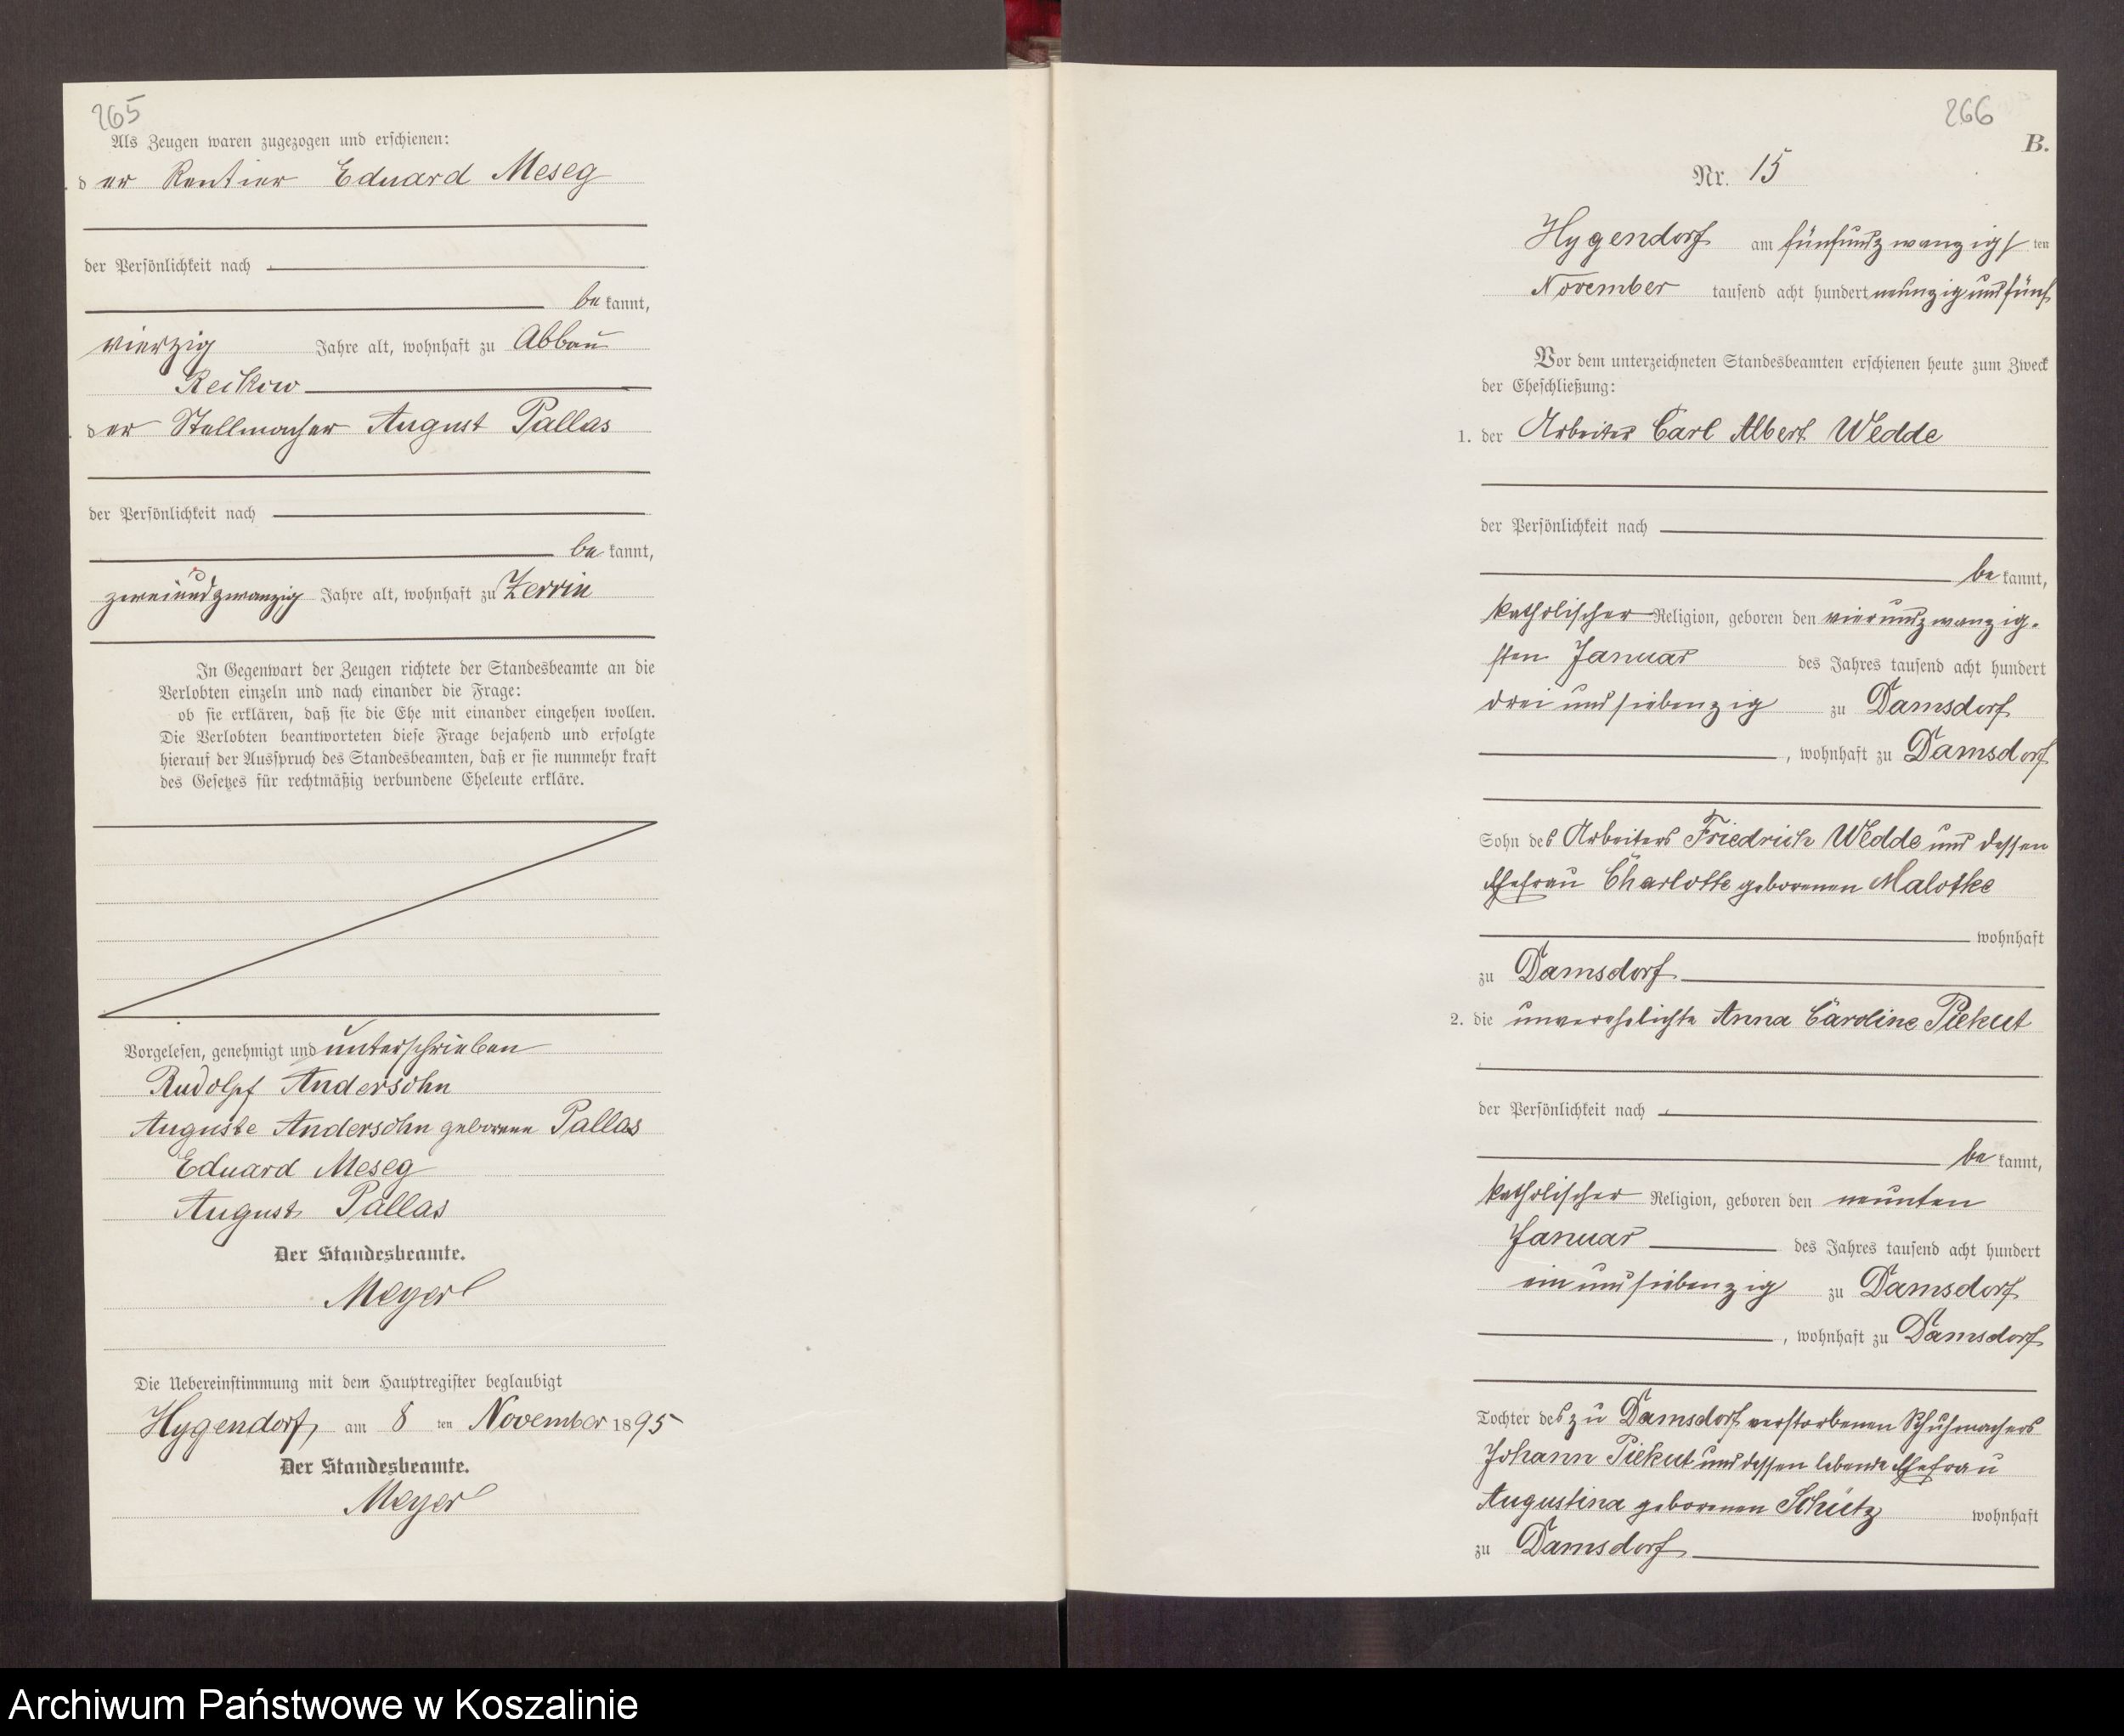 265
Als Zeugen waren zugezogen und erschienen:
der Rentier Eduard Meseg
der Persönlichkeit nach
bekannt,
vierzig Jahre alt, wohnhaft zu Abbau
Reckow
der Stellmacher August Pallas
der Persönlichkeit nach
bekannt,
zweiundzwanzig Jahre alt, wohnhaft zu Zerrin
In Gegenwart der Zeugen richtete der Standesbeamte an die
Verlobten einzeln und nach einander die Frage:
ob sie erklären, daß sie die Ehe mit einander eingehen wollen.
Die Verlobten beantworteten diese Frage bejahend und erfolgte
hierauf der Ausspruch des Standesbeamten, daß er sie nunmehr kraft
des Gesetzes für rechtmäßig verbundene Eheleute erkläre.
Vorgelesen, genehmigt und unterschrieben
Rudolpf Andersohn
Auguste Andersohn geborene Pallas
Eduard Meseg
August Pallas
Der Standesbeamte.
Meyer
Die Uebereinstimmung mit dem Hauptregister beglaubigt
Hygendorf, am 8 ten November 1895
Der Standesbeamte.
Meyer
266
B.
Nr. 15
Hygendorf am fünfundzwanzigsten
November tausend acht hundert neunzig und fünf
Vor dem unterzeichneten Standesbeamten erschienen heute zum Zweck
der Eheschließung:
1. der Arbeiter Carl Albert Wedde
der Persönlichkeit nach
bekannt,
katholischer Religion, geboren den vierundzwanzig-
sten Januar des Jahres tausend acht hundert
drei und siebenzig zu Damsdorf
, wohnhaft zu Damsdorf
Sohn des Arbeiters Friedrich Wedde und dessen
Ehefrau Charlotte geborenen Malotke
wohnhaft
zu Damsdorf
2. die unverehelichte Anna Caroline Piekut
der Persönlichkeit nach
bekannt,
katholischer Religion, geboren den neunten
Januar des Jahres tausend acht hundert
ein und siebenzig zu Damsdorf
, wohnhaft zu Damsdorf
Tochter des zu Damsdorf verstorbenen Schuhmachers
Johann Piekut und dessen lebende Ehefrau
Augustina geborenen Schütz wohnhaft
zu Damsdorf
Archiwum Państwowe w Koszalinie